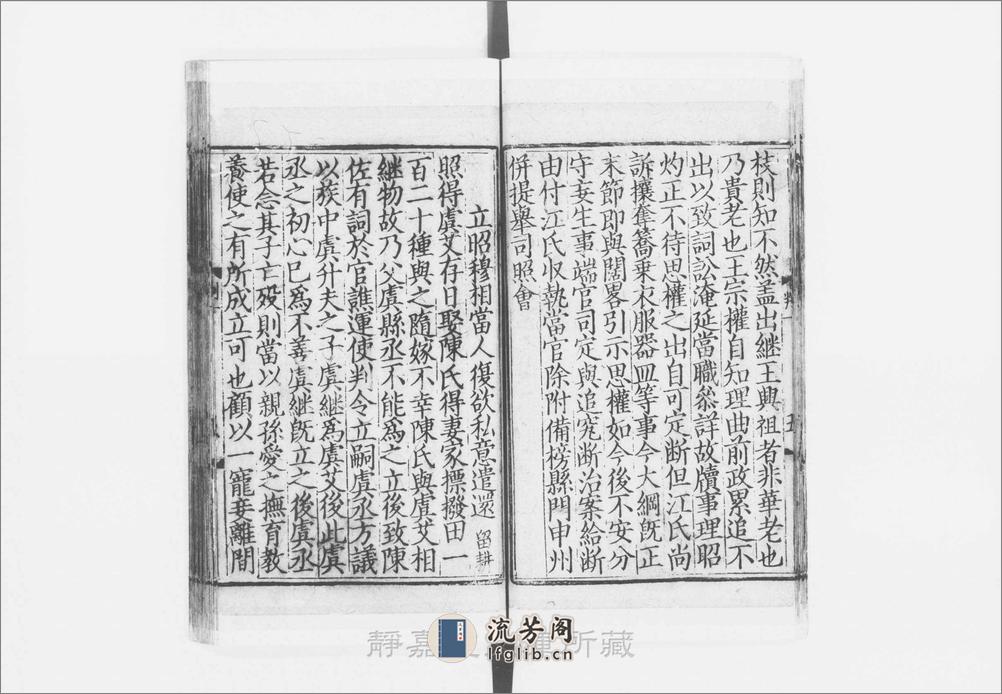 枝則知不然盖出継王興祖者非華老也
乃貴老也王宗權自知理曲前政累追不
出以致詞訟淹延當職叅詳故牘事理昭
灼正不待思權之出自可定断但江氏尚
訴攘奪篭乗衣服器皿等事今大綱旣正
末節即與闊畧引示思權如今後不安分
守妄生事端官司定與追究断治案給断
由付江氏収執當官除附備榜縣門申州
併提舉司照會
立昭穆相當人復欲私意遣還 留耕
照得虞艾存日娶陳氏得妻家摽撥田一
百二十種與之隨嫁不幸陳氏與虞艾相
継物故乃父虞縣丞不能為之立後致陳
佐有詞於官譙運使判令立嗣虞丞方議
以族中虞升夫之子虞継為虞艾後此虞
丞之初心已為不善虞継旣立之後虞丞
若念其子亡殁則當以親孫愛之撫育教
養使之有所成立可也顧以一寵妾離間
靜嘉堂文庫所藏
流芳阁
lfglib.cn